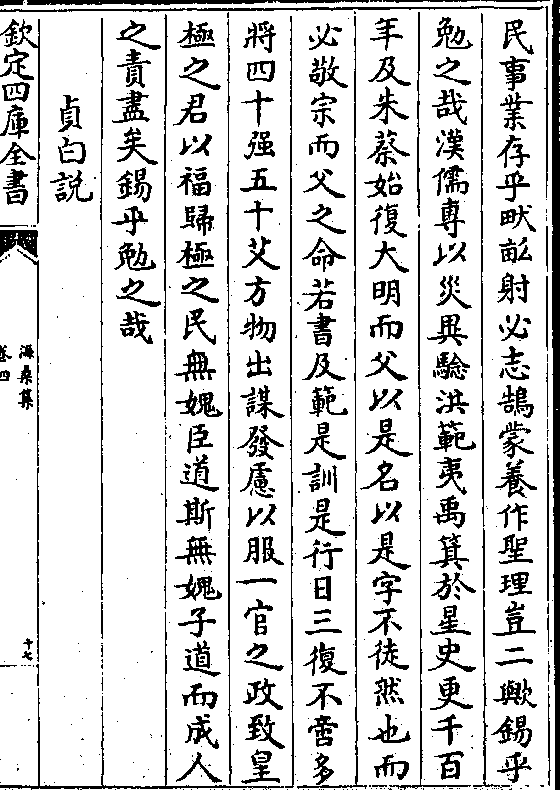 民事業存乎畎畝射必志鵠蒙養作聖理豈二歟錫乎
勉之哉漢儒專以災異驗洪範夷禹箕於星史更千百
年及朱蔡始復大明而父以是名以是字不徒然也而
必敬宗而父之命若書及範是訓是行日三復不啻多
將四十强五十艾方物出謀發慮以服一官之政致皇
極之君以福歸極之民無媿臣道斯無媿子道而成人
之責盡矣錫乎勉之哉
貞白説
欽定四庫全書
海桑集
卷四
十七